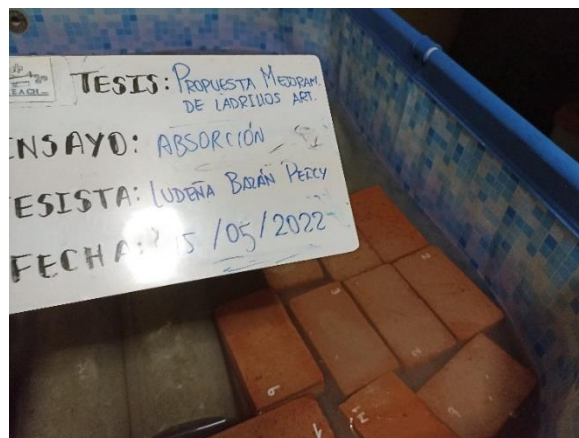 TESIS: PROPUESTA MEJORAM.
DE LADRILLOS ART.
ENSAYO: ABSORCIÓN
TESISTA: LUDEÑA BAZÁN PERCY
FECHA: 15/05/2022
6
1
2